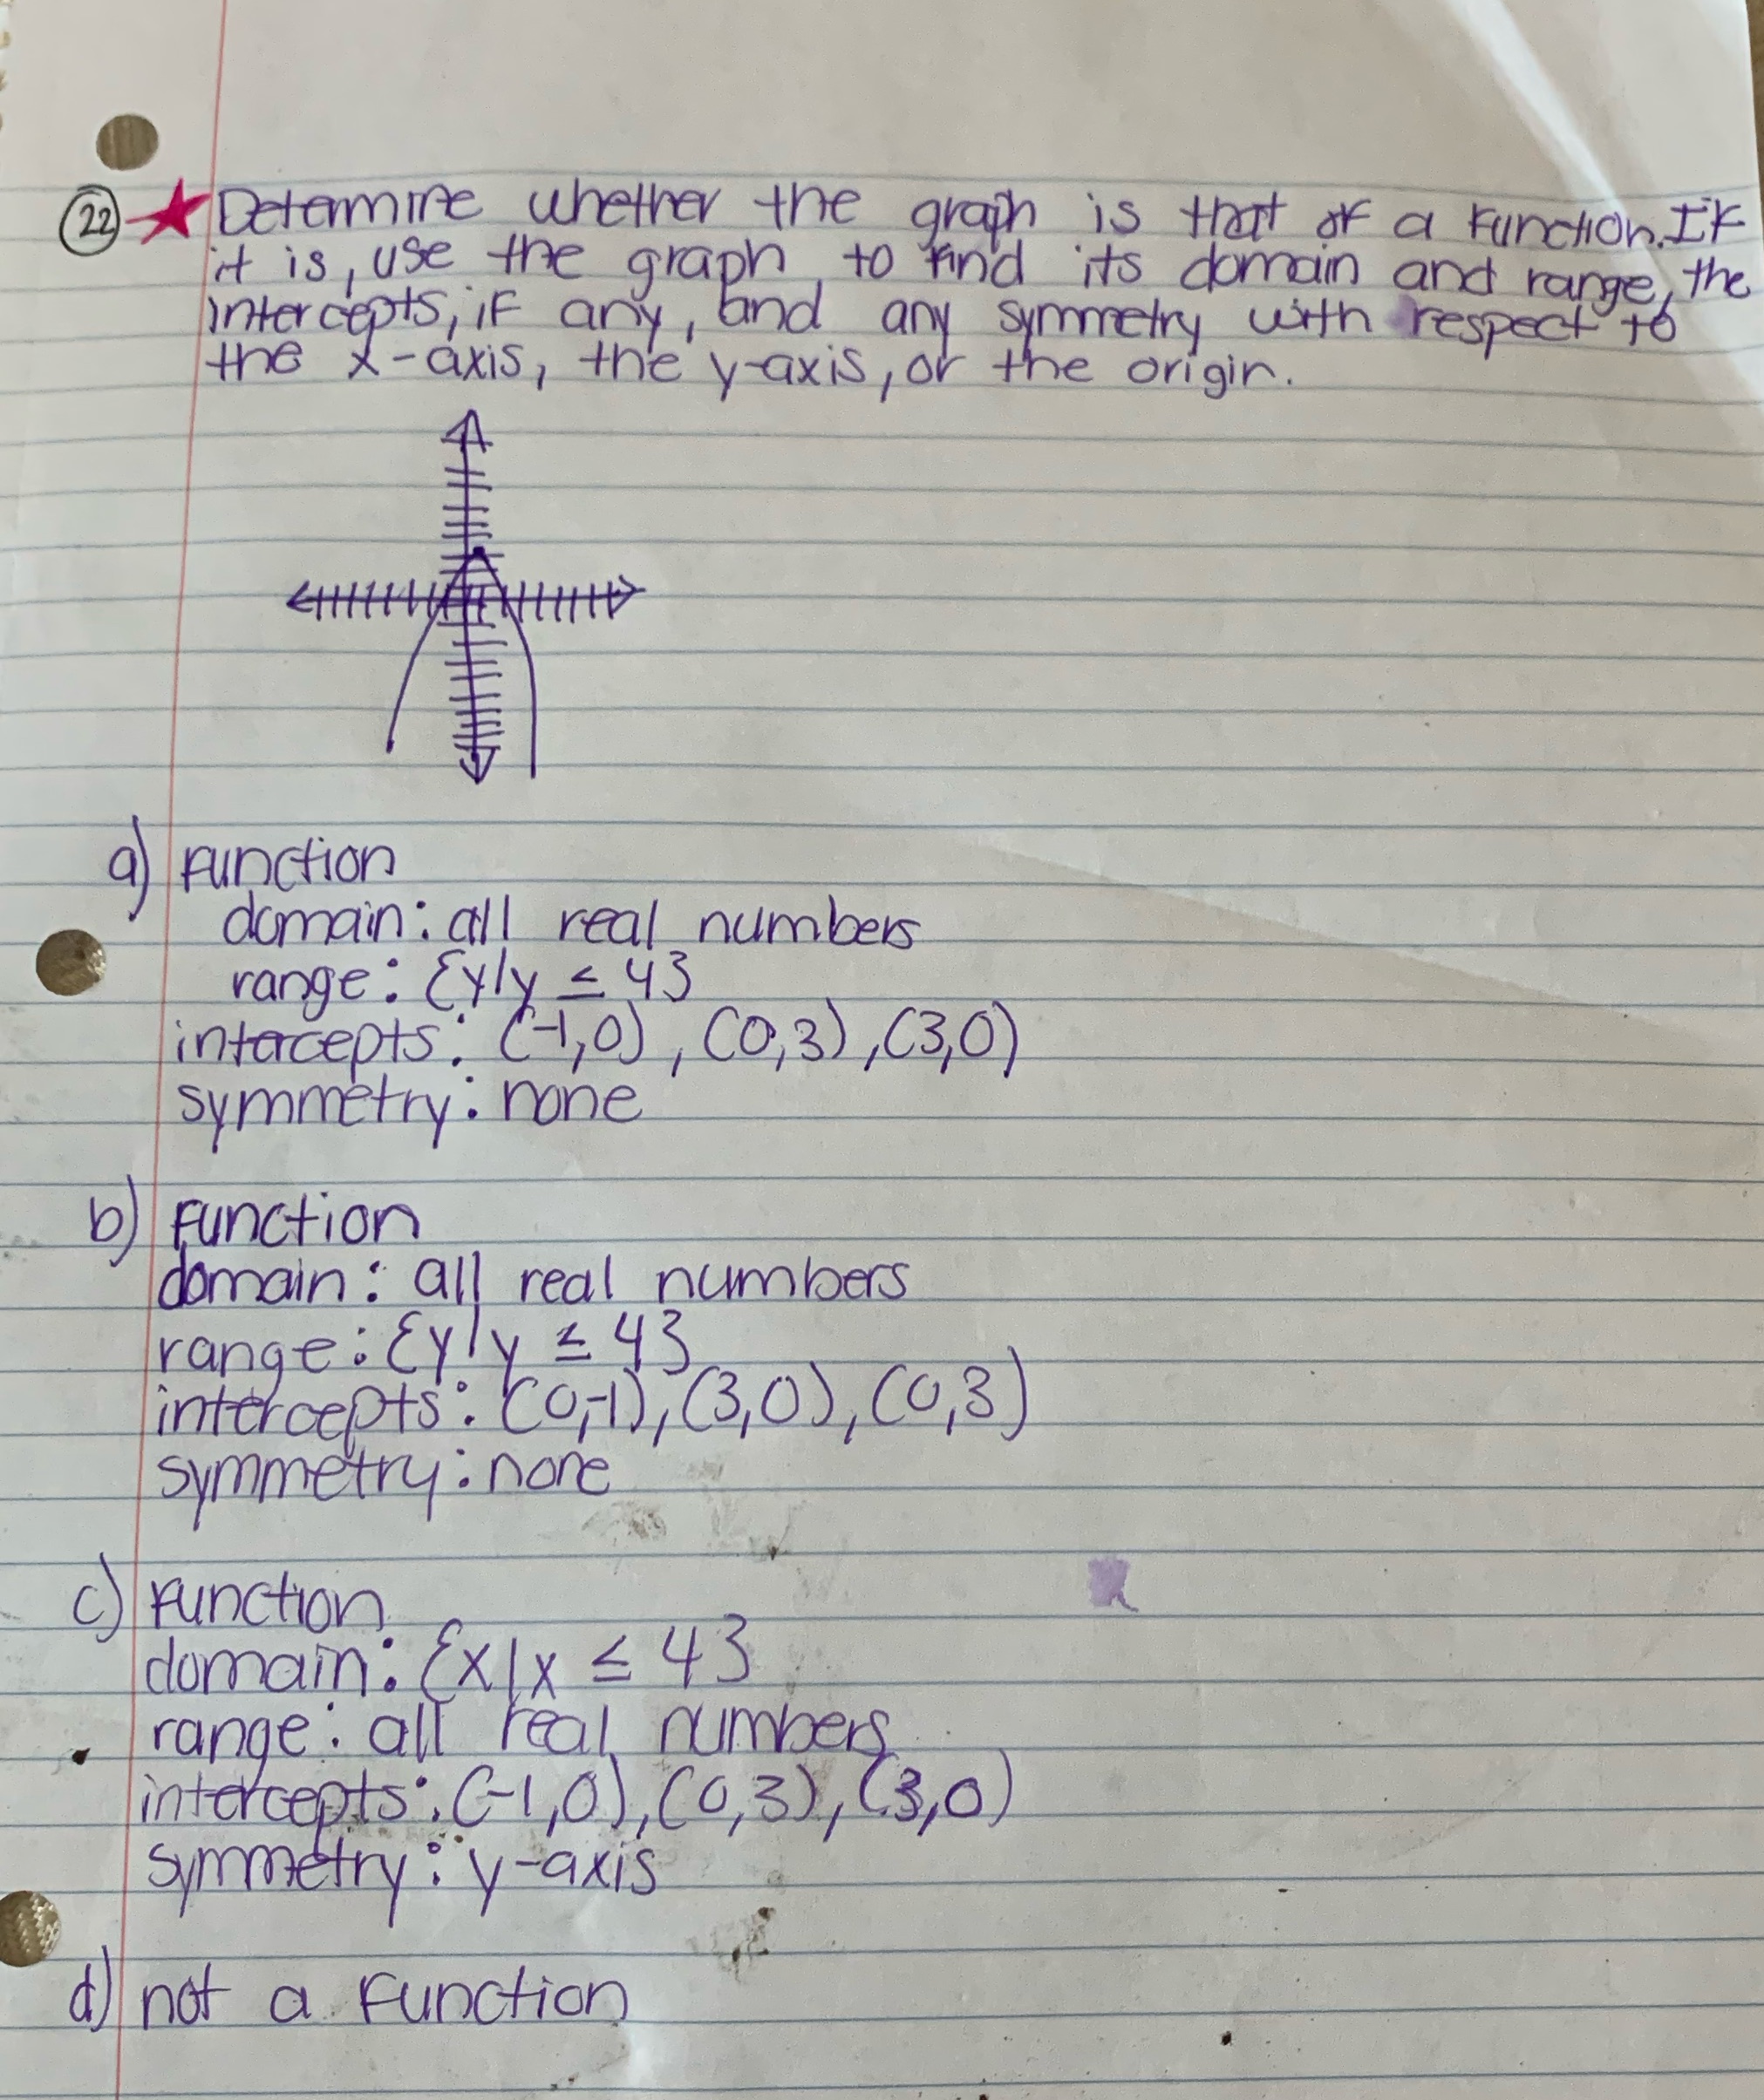 22 Determine whether the graph is that of a function. If
it is, use the graph to find its domain and range, the
intercepts, if any, and any symmetry with respect to
the x-axis, the y-axis, or the origin.
a) function
domain: all real numbers
range: {y|y ≤ 4}
intercepts: (-1,0), (0,3), (3,0)
symmetry: none
b) function
domain: all real numbers
range: {y|y ≤ 4}
intercepts: (0,-1), (3,0), (0,3)
symmetry: none
c) function
domain: {x|x ≤ 4}
range: all real numbers
intercepts: (-1,0), (0,3), (3,0)
symmetry: y-axis
d) not a function